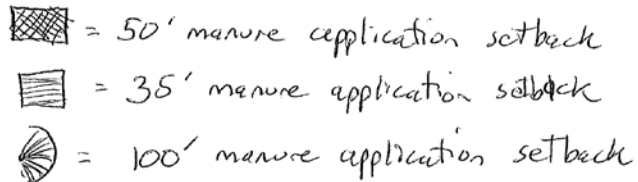 = 50' manure application setback
= 35' manure application setback
= 100' manure application setback